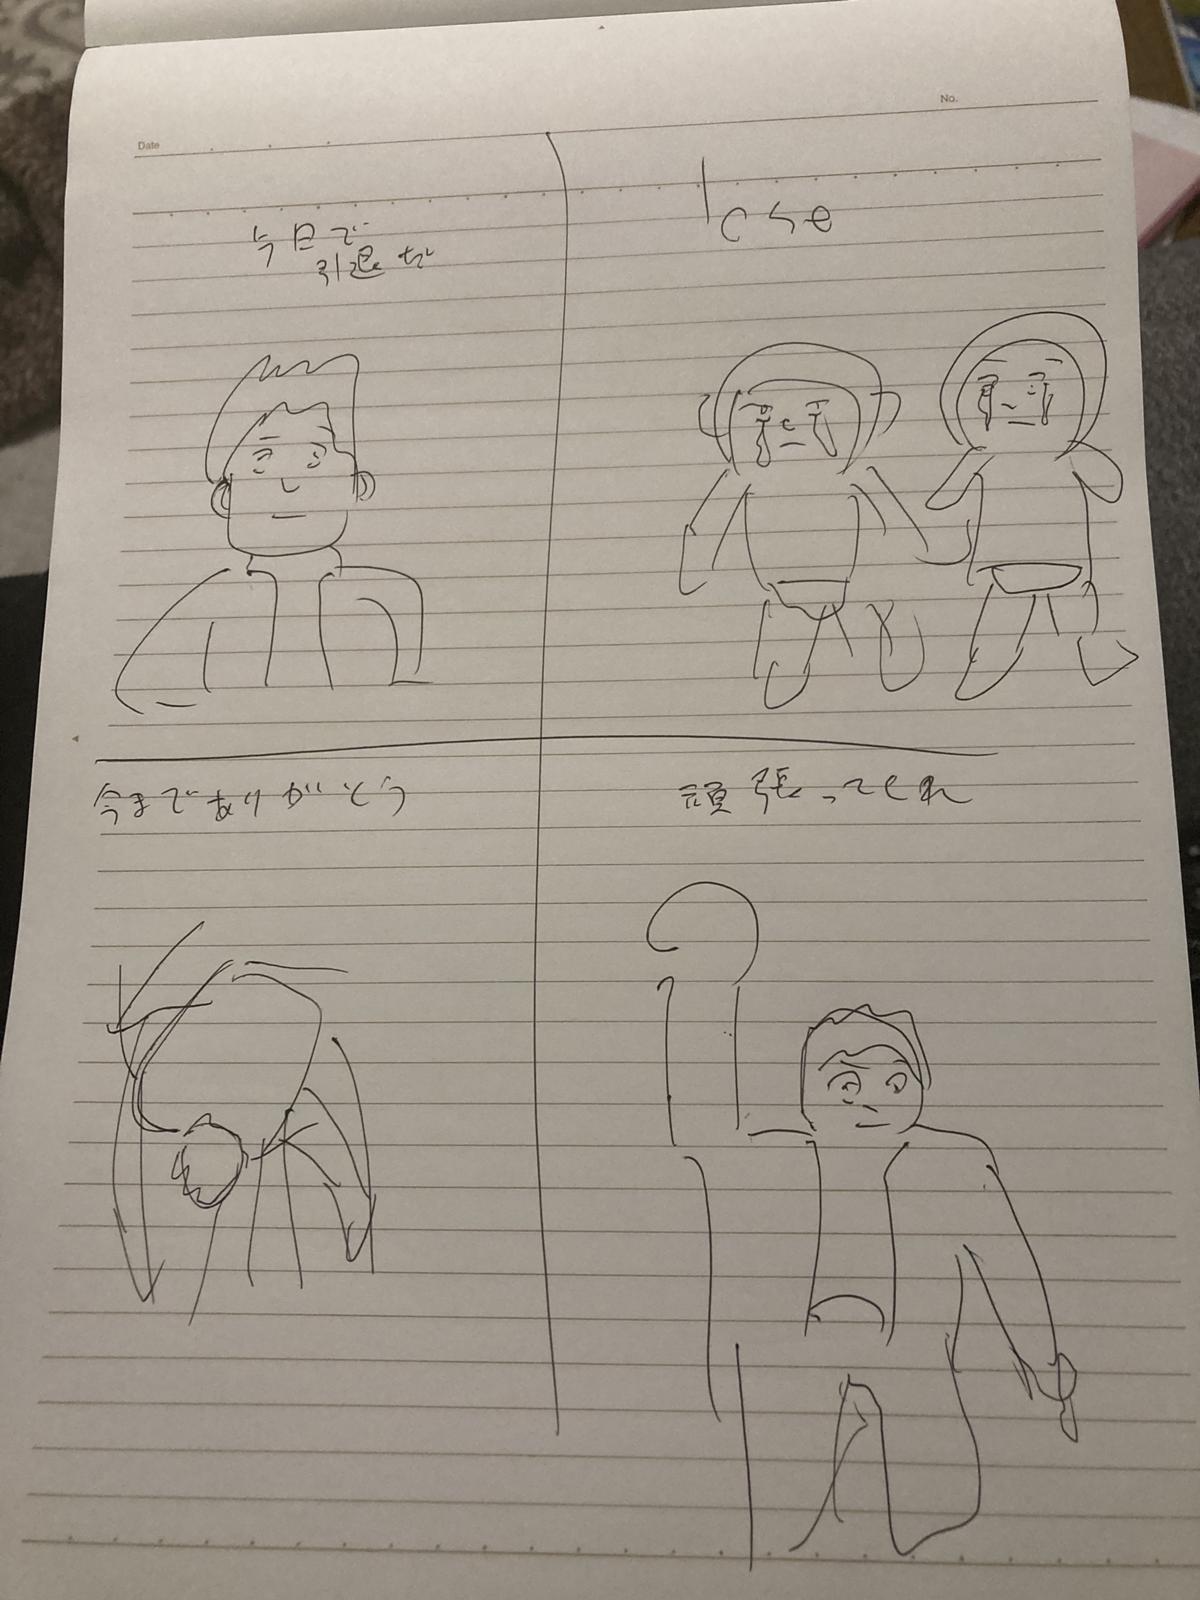 Date
No.
今日で
引退だ
lose
今までありがとう
頑張ってくれ